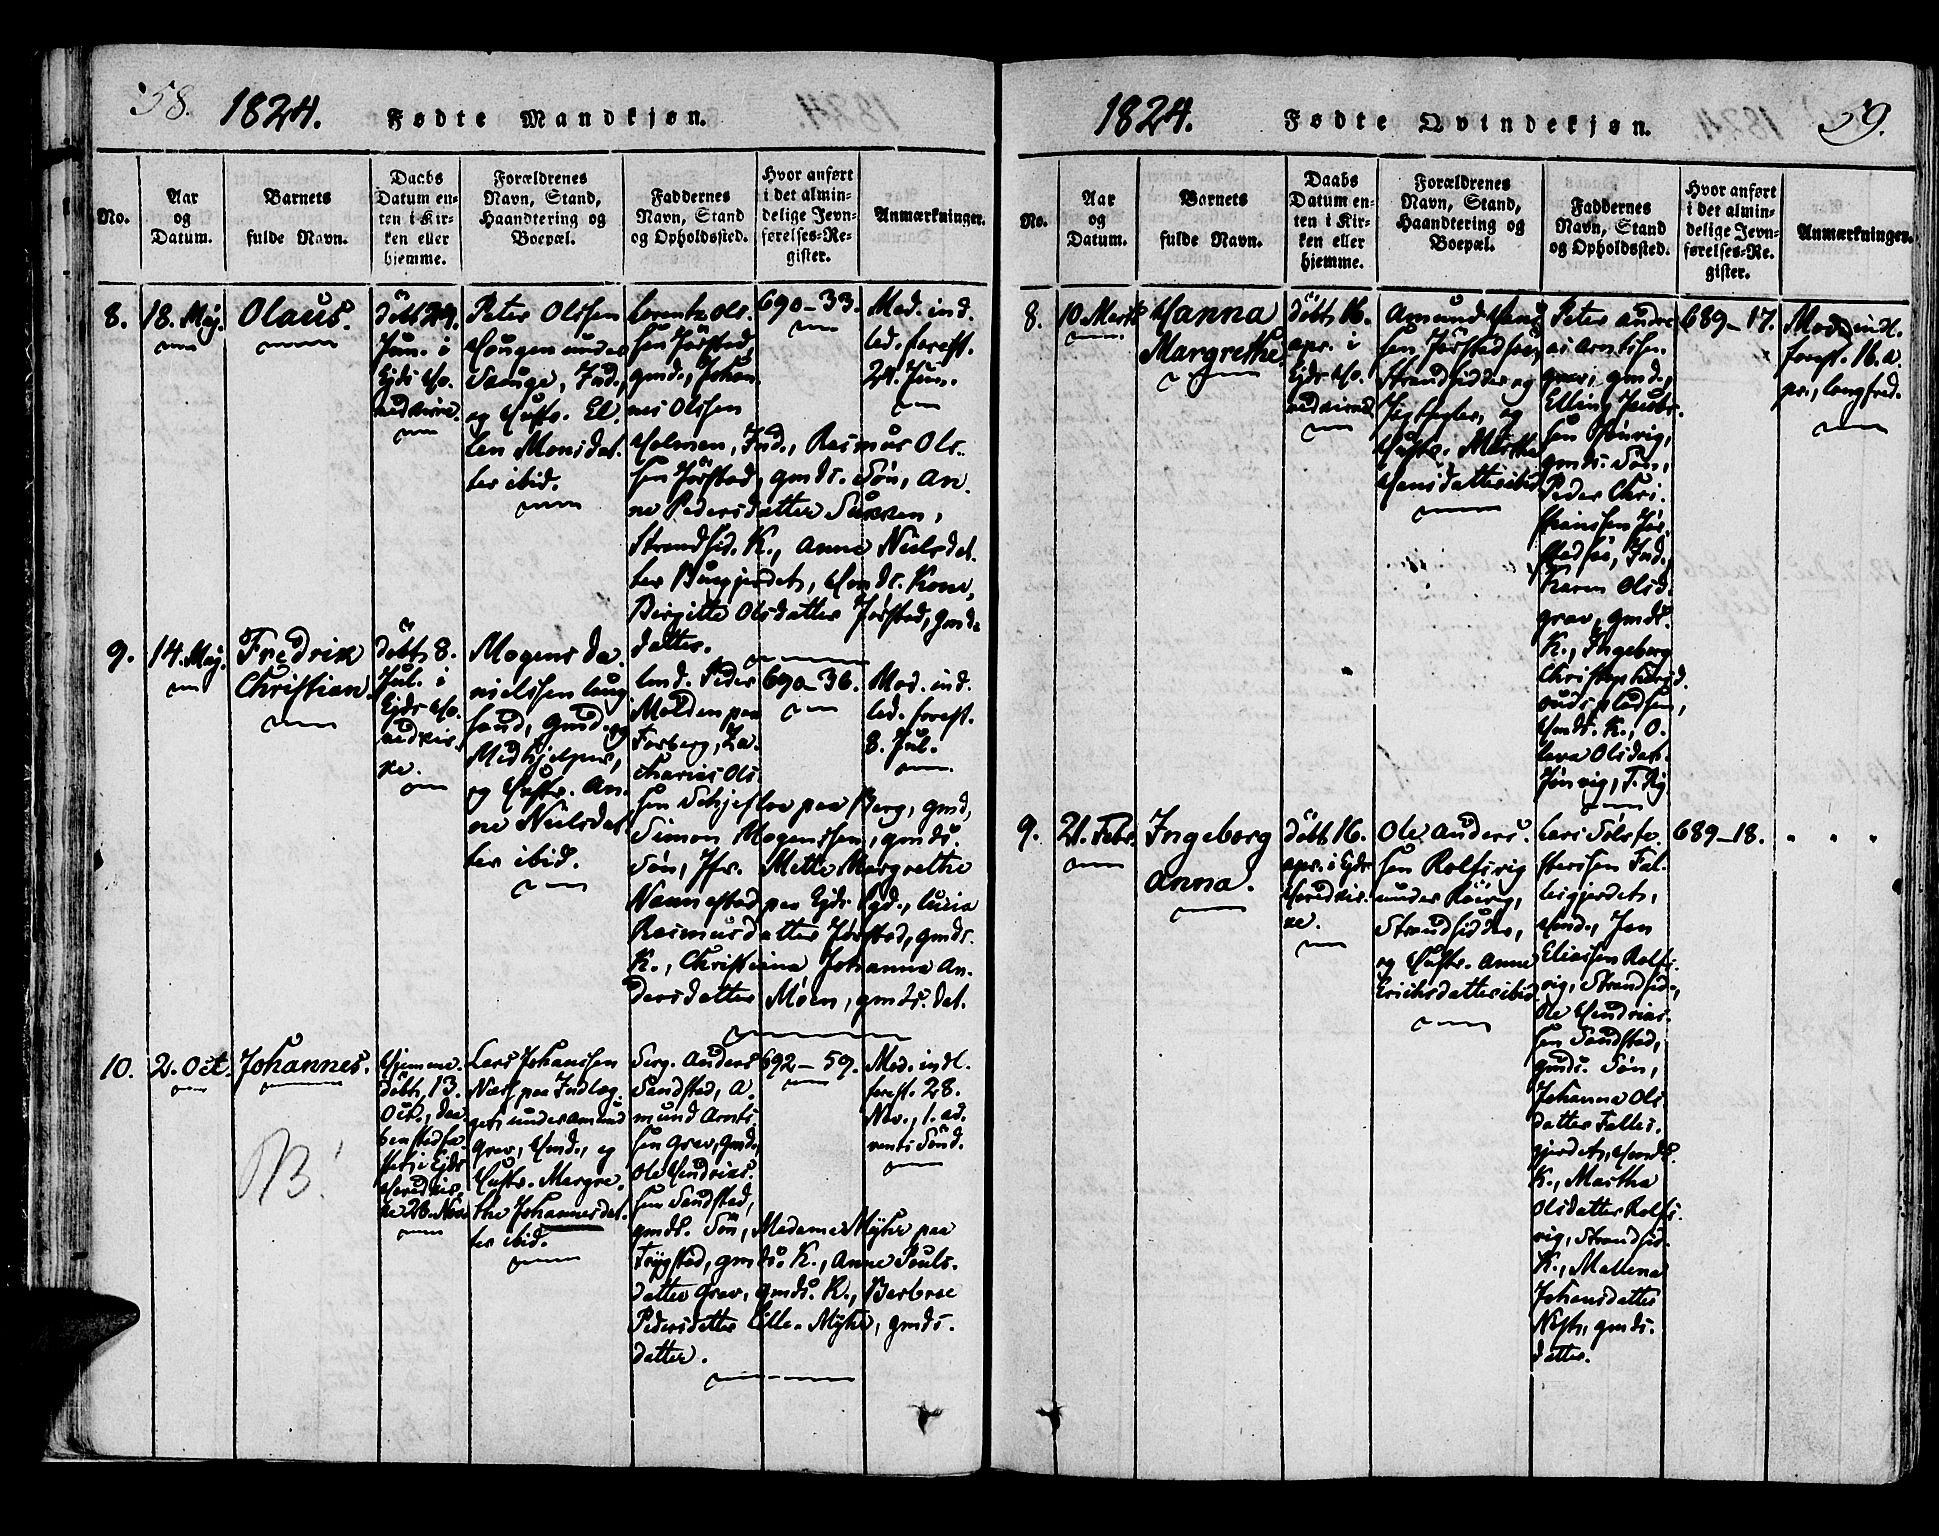 58. 1824. Fødte Mandkjøn.
No.
Aar
og
Datum.
Barnets
fulde Navn.
Daabs
Datum en-
ten i Kir-
ken eller
hjemme.
Forældrenes
Navn, Stand,
Haandtering og
Boepæl.
Faddernes
Navn, Stand
og Opholdssted.
Hvor anført
i det almin-
delige Jevn-
førelses-Re-
gister.
Anmærkninger.
8.
18. Maj.
Olaus.
döbt 29.
Jun. i
Ejds Ho-
vedkirke.
Peter Olssen
Hougen under
Sauge, Ind.,
og Hustr. El-
len Monsdat-
ter ibid.
Lorentz Ols-
sen Jörstad,
gmd., Johan-
nes Olssen
Holmen, Ind., Rasmus Ols-
sen Jörstad, gmds. Sön, An-
ne Pedersdatter
Strandsid. K., Anne Nielsdat-
ter Hmds. Kone,
Birgitte Olsdatter Jörstad, gmds
datter.
690-33.
Mod. ind-
led. forest.
29. Jun.
9.
14. Maj.
Fredrik
Christian
döbt 8.
Jul. i
Ejds Ho-
vedkir-
ke.
Mogens Da-
nielssen
Gmd. og
Medhjelper,
og Hustr. An-
ne Nielsdat-
ter ibid.
Peder
paa
Forberg, Za-
charias Ols-
sen paa Berg, gmd,
Simon Mogenssen, gmds.
Sön, Jfr. Mette Margrethe
Nannestad paa Ejds Lucia
Rasmusdatter Jörstad, gmds.
K., Christiana Johanna An-
dersdatter Moen, gmds. dat.
690-36.
Mod. ind-
led. forest.
8. Jul.
10.
2. Oct.
Johannes.
Hjemme-
döbt 13.
Oct., daa-
ben stadfæ-
stet i Ejds
Hovedkir-
ke 28. Nov.
Lars Johanssen
paa Indlæg-
get under Amund
Grav, Hmd., og
Hustr. Margre-
the Johannesdat-
ter ibid.
NB!
Serg. Anders
Sandstad, A-
mund Arnts-
sen Grav, gmd,
Ole Hendriks-
sen Sandstad,
gmds. Sön, Madame Myhr paa
Trygstad, gmds. K., Anne Pouls-
datter Grav, gmds. K., Barbroe
Pedersdatter Lille-Myhr, gmds.
datter.
692-59.
Mod. indl.
forest. 28.
Nov., 1. Ad-
vents Sönd.
1824. Fødte Qvindekjøn. 59.
No.
Aar
og
Datum.
Barnets
fulde Navn.
Daabs
Datum en-
ten i Kir-
ken eller
hjemme.
Forældrenes
Navn, Stand,
Haandtering og
Boepæl.
Faddernes
Navn, Stand
og Opholdssted.
Hvor anført
i det almin-
delige Jevn-
førelses-Re-
gister.
Anmærkninger.
8.
10. Marts
Hanna
Margrethe.
döbt 16.
Apr. i
Ejds Ho-
vedkirke
Amund Hans-
sen
Strandsidder og
og
Hustr. Martha
Hansdatter ibid
Peter Andre-
as Arntssen
Grav, gmd.,
Elling Jacob-
sen
gmds. Sön,
Peder Chri-
stianssen Jör-
Ind.,
Karen Olsd.
Grav, gmds.
K., Ingeborg
Christophersd.
Hmds. K., O-
lava Olsdatt.
689-17.
Mod. indl.
forest. 16. A-
pr., Langfred.
9.
21. Febr.
Ingeborg
Anna.
döbt 16.
Apr. i Ejds
Hovedkir-
ke.
Ole Anders-
sen Rolsvig
under
Strandsidder,
og Hustr. Anne
Erichsdatter ibid
Lars Sylfe-
stersen Fal-
lesgjerdet,
Hmd., Jon
Eliassen Rols-
vig, Strandsid.,
Ole Hendriks-
sen Sandstad,
gmds. Sön,
Johanna Ols-
datter Falles-
gjerdet, Hmds.
K., Martha
Olsdatter Rols-
vig, Strandsid.
K., Mallena
Johansdatter
gmds.
datter.
689-18.